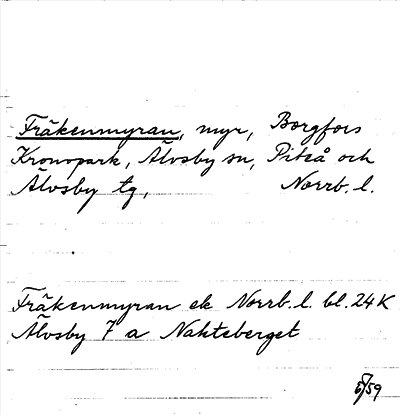 Fräkenmyran, myr, Borgfors
Kronopark, Älvsby sn, Piteå och
Älvsby tg, Norrb. l.
Fräkenmyran ek Norrb. l. bl. 24 K
Älvsby 7 a Nakteberget
6/59